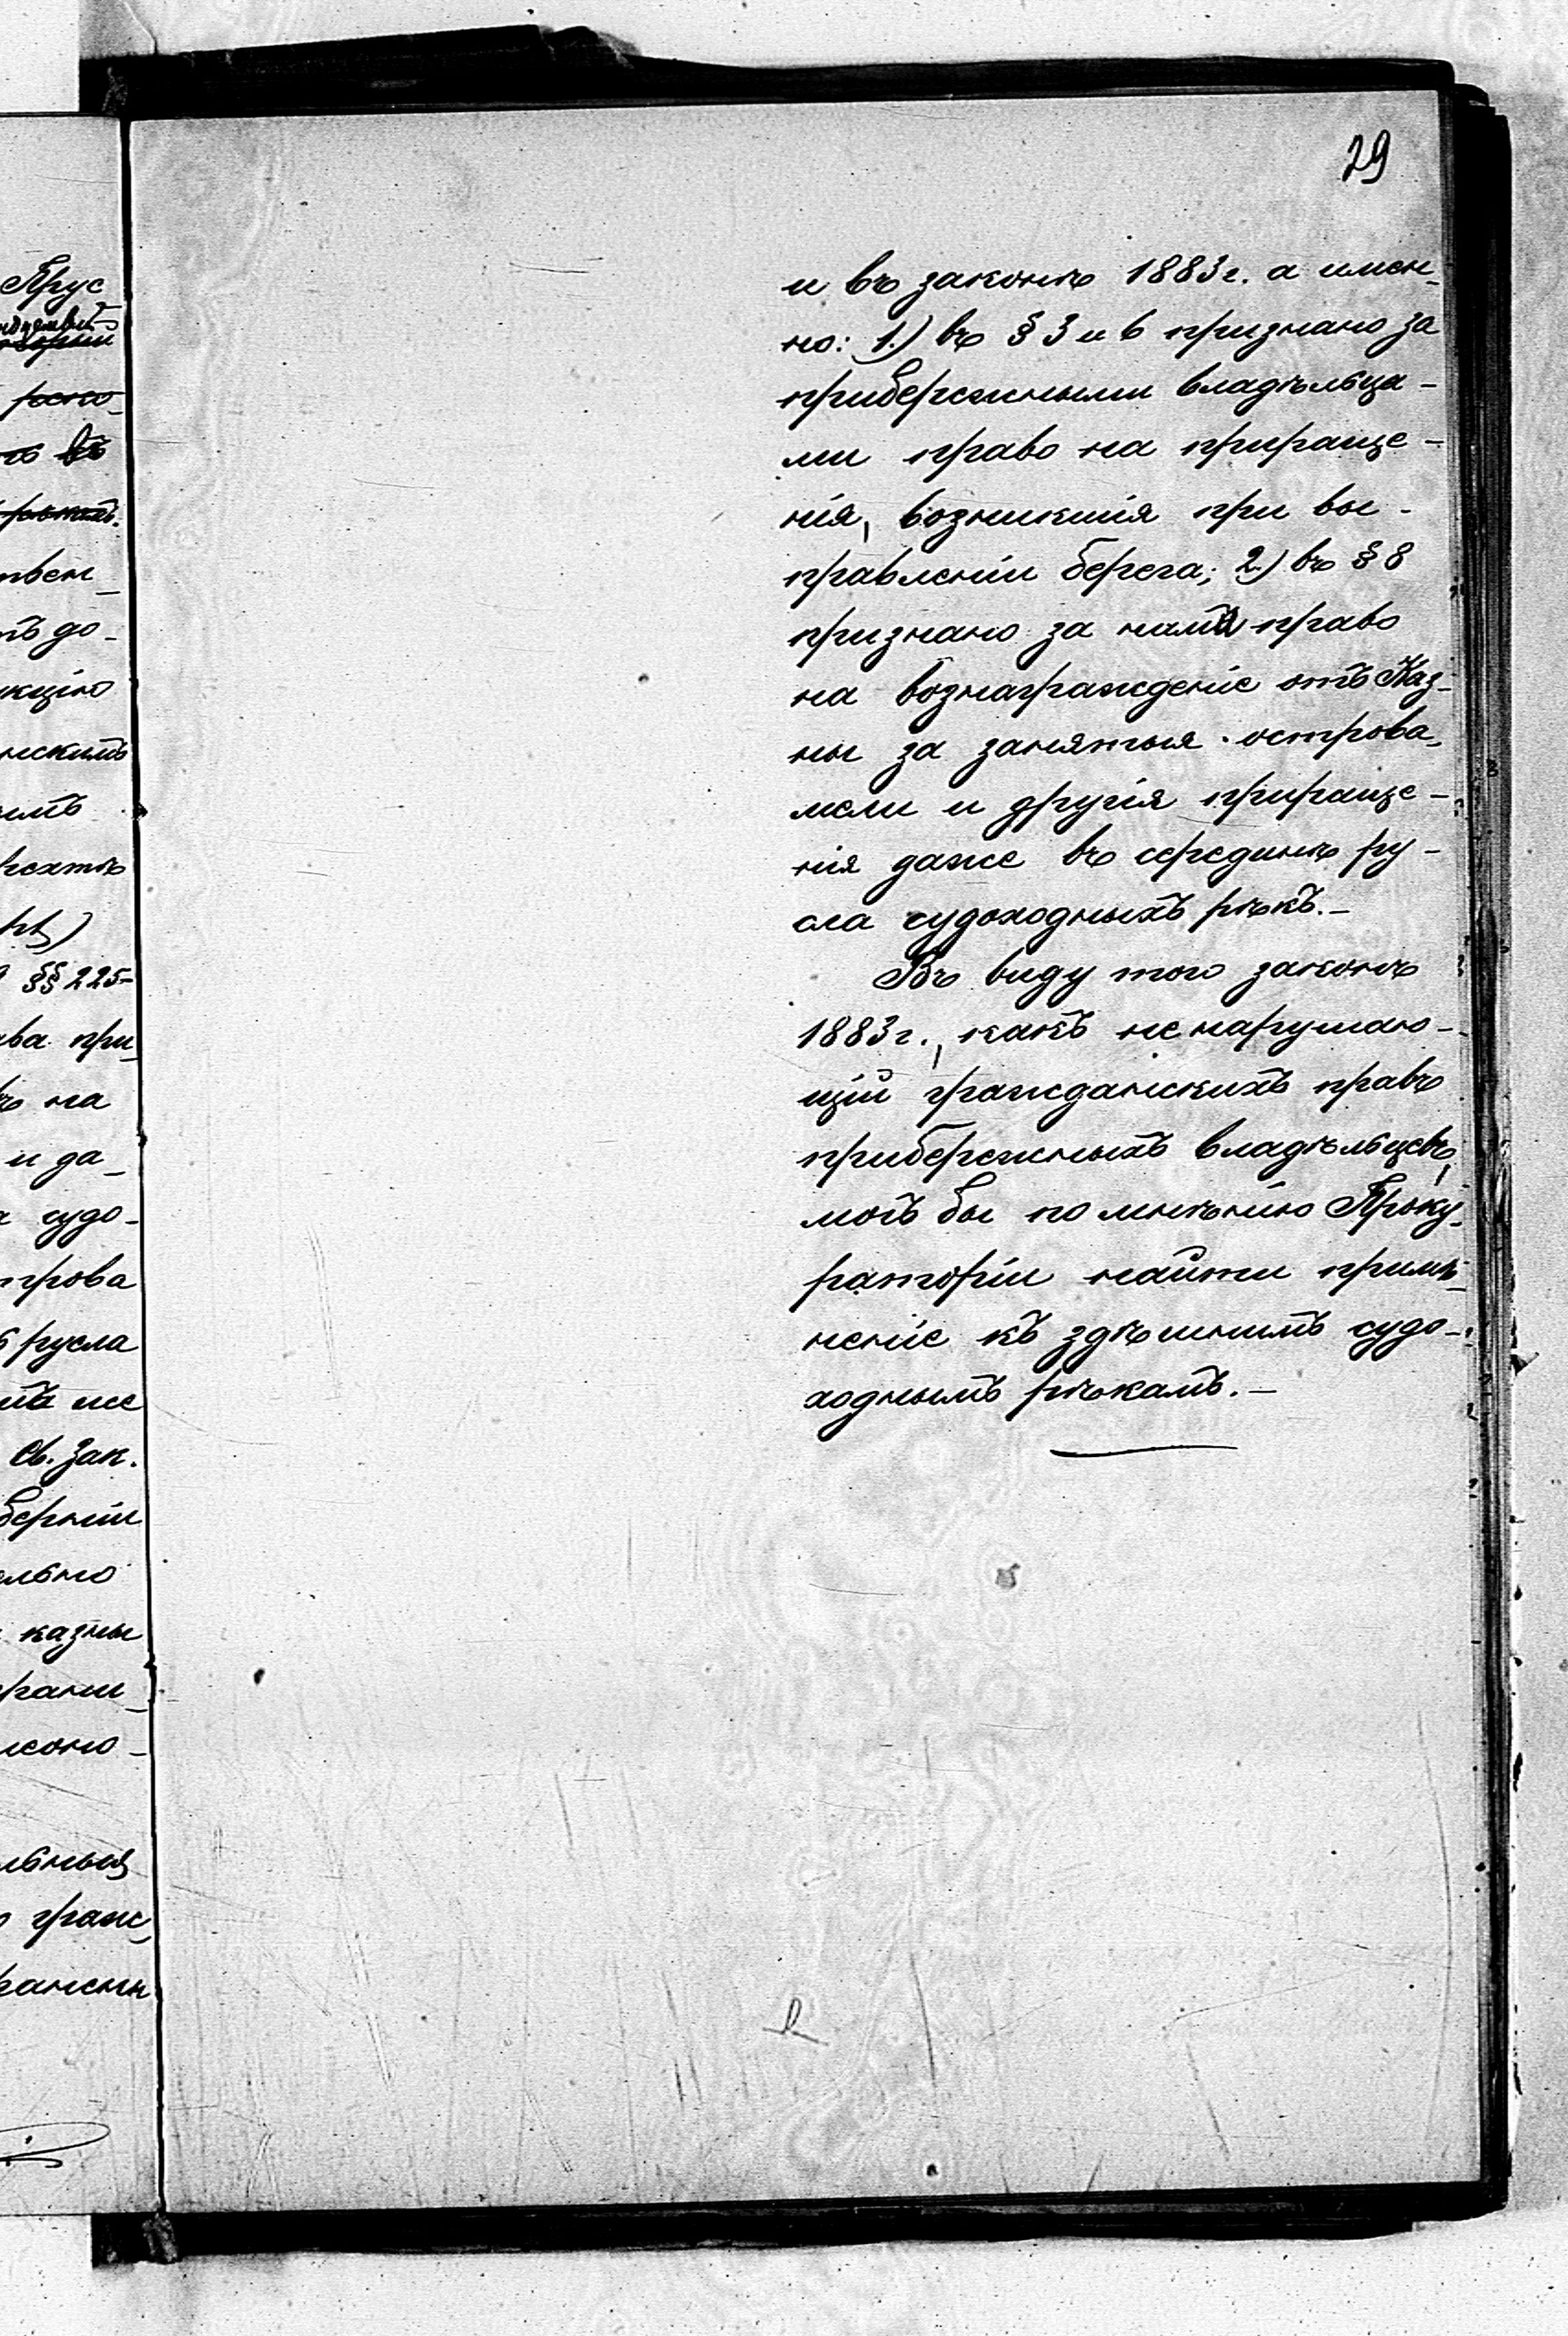 29
и въ законѣ 1883 г. а имен-
но: 1.) въ § 3 и 6 признано за
прибережными владѣльца-
ми право на прираще-
нія, возникшія при вы-
правленіи берега; 2.) въ § 8
признано за ними право
на вознагражденіе отъ Каз-
ны за занятыя острова,
мели и другія прираще-
нія даже въ серединѣ ру-
сла судоходныхъ рѣкъ.—
Въ виду того законъ
1883 г., какъ не нарушаю-
щій гражданскихъ правъ
прибережныхъ владѣльцевъ,
могъ бы по мнѣнію Проку-
раторіи найти примѣ-
неніе къ здѣшнимъ судо-
ходнымъ рѣкамъ.—
Прус
твен-
до-
кцію
§§ 225-
ва при-
на
и да-
судо-
трова
русла
же
Св. Зак.
берніи
льно
казны
грани-
льныя
граж-